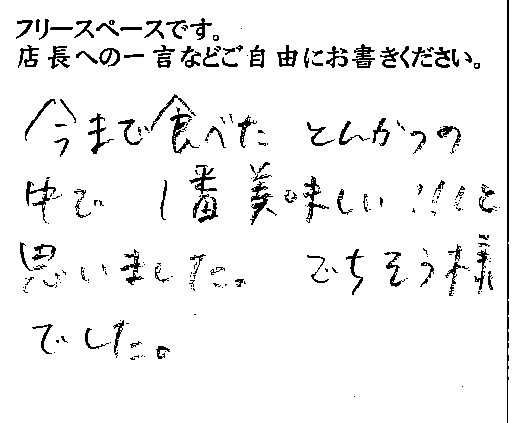 フリースペースです。
店長への一言などご自由にお書きください。
今まで食べた とんかつの
中で 1番美味しい!!!と
思いました。 でちそう様
でした。